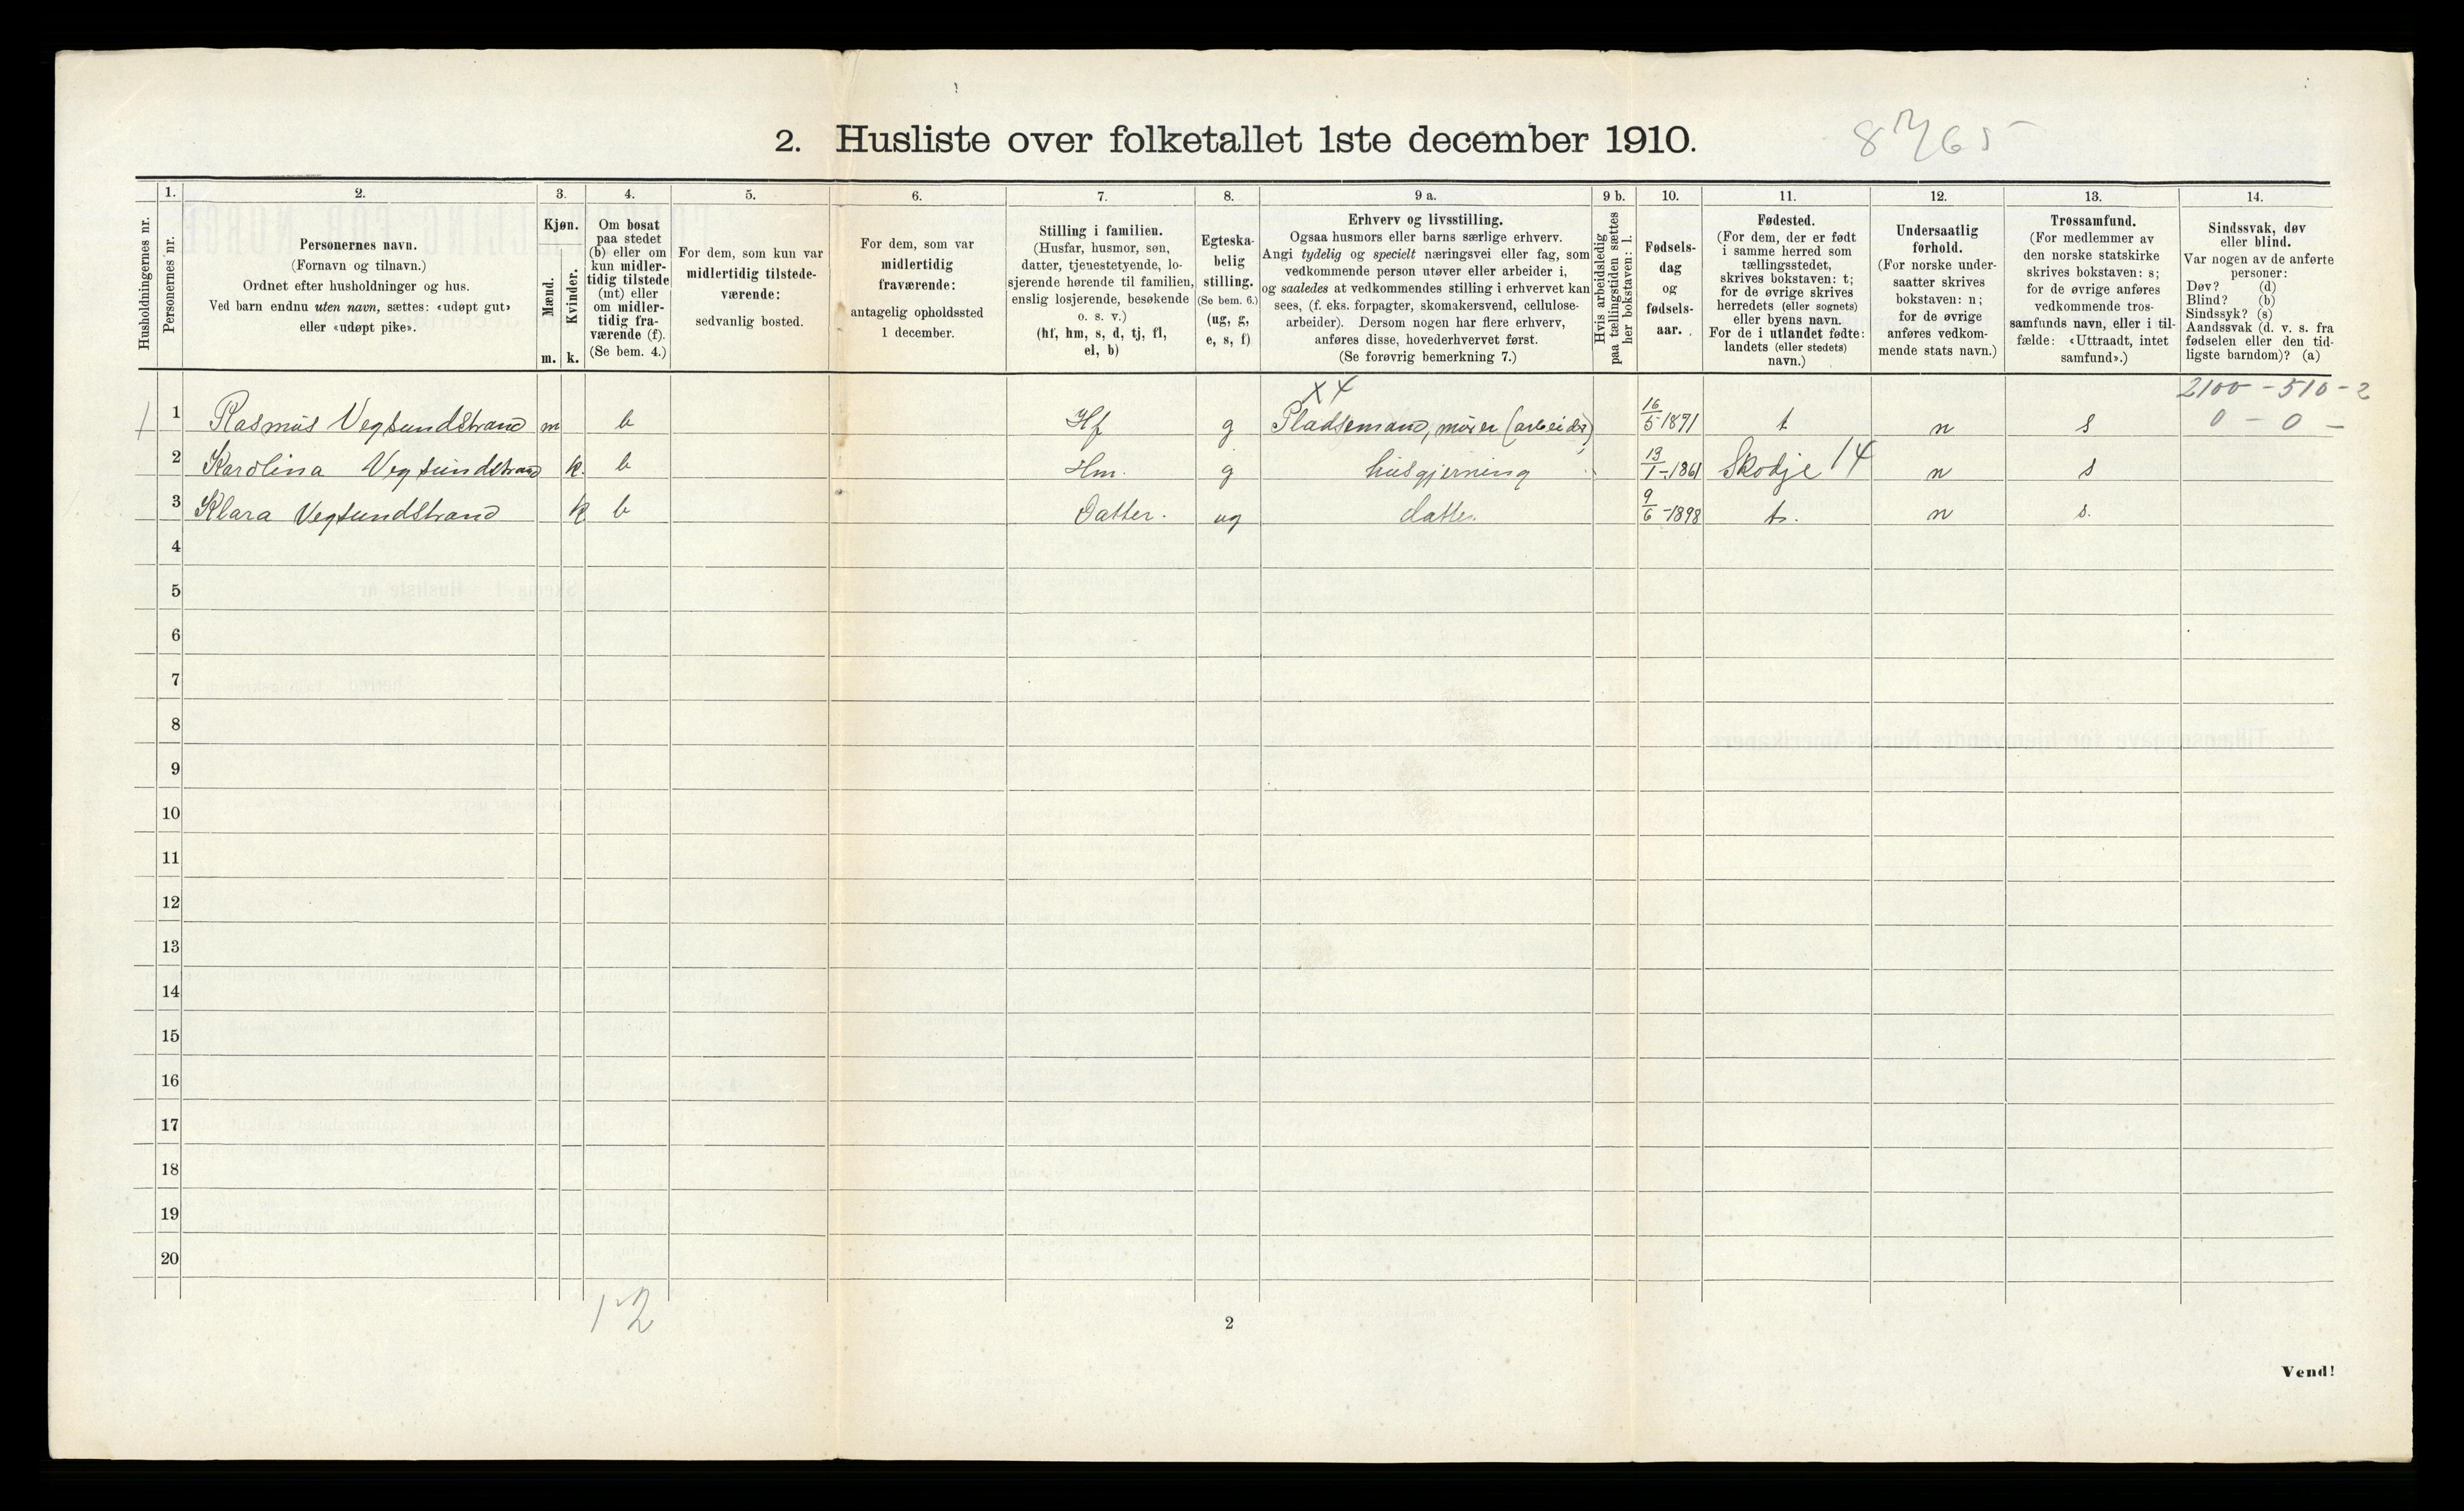 2. Husliste over folketallet 1ste december 1910.
Husholdningernes nr.
1.
Personernes nr.
2.
Personernes navn.
(Fornavn og tilnavn.)
Ordnet efter husholdninger og hus.
Ved barn endnu uten navn, sættes: «udøpt gut»
eller «udøpt pike».
3.
Kjøn.
Mænd.
Kvinder.
m. k.
4.
Om bosat
paa stedet
(b) eller om
kun midler-
tidig tilstede
(mt) eller
om midler-
tidig fra-
værende (f).
(Se bem. 4.)
5.
For dem, som kun var
midlertidig tilstede-
værende:
sedvanlig bosted.
6.
For dem, som var
midlertidig
fraværende:
antagelig opholdssted
1 december.
7.
Stilling i familien.
(Husfar, husmor, søn,
datter, tjenestetyende, lo-
sjerende hørende til familien,
enslig losjerende, besøkende
o. s. v.)
(hf, hm, s, d, tj, fl,
el, b)
8.
Egteska-
belig
stilling.
(Se bem. 6.)
(ug, g,
e, s, f)
9 a.
Erhverv og livsstilling.
Ogsaa husmors eller barns særlige erhverv.
Angi tydelig og specielt næringsvei eller fag, som
vedkommende person utøver eller arbeider i,
og saaledes at vedkommendes stilling i erhvervet kan
sees, (f. eks. forpagter, skomakersvend, cellulose-
arbeider). Dersom nogen har flere erhverv,
anføres disse, hovederhvervet først.
(Se forøvrig bemerkning 7.)
9 b.
Hvis arbeidsledig
paa tællingstiden sættes
her bokstaven: l.
10.
Fødsels-
dag
og
fødsels-
aar.
11.
Fødested.
(For dem, der er født
i samme herred som
tællingsstedet,
skrives bokstaven: t;
for de øvrige skrives
herredets (eller sognets)
eller byens navn.
For de i utlandet fødte:
landets (eller stedets)
navn.)
12.
Undersaatlig
forhold.
(For norske under-
saatter skrives
bokstaven: n;
for de øvrige
anføres vedkom-
mende stats navn.)
13.
Trossamfund.
(For medlemmer av
den norske statskirke
skrives bokstaven: s;
for de øvrige anføres
vedkommende tros-
samfunds navn, eller i til-
fælde: «Uttraadt, intet
samfund».)
14.
Sindssvak, døv
eller blind.
Var nogen av de anførte
personer:
Døv? (d)
Blind? (b)
Sindssyk? (s)
Aandssvak (d. v. s. fra
fødselen eller den tid-
ligste barndom)? (a)
x 4 2100 - 510 - 2
1 1 Rasmus Vegsundstrand m b Hf g Pladsemand, murer (arbeider) 16/5 1871 t n s 0 - 0 -
2 Karolina Vegsundstrand k. b Hm. g husgjerning 13/1-1861 Skodje 14 n s
3 Klara Vegsundstrand k b Datter. ug datter. 9/6-1898 t. n s.
4
5
6
7
8
9
10
11
12
13
14
15
16
17
18
19
20
1-2
2
Vend!